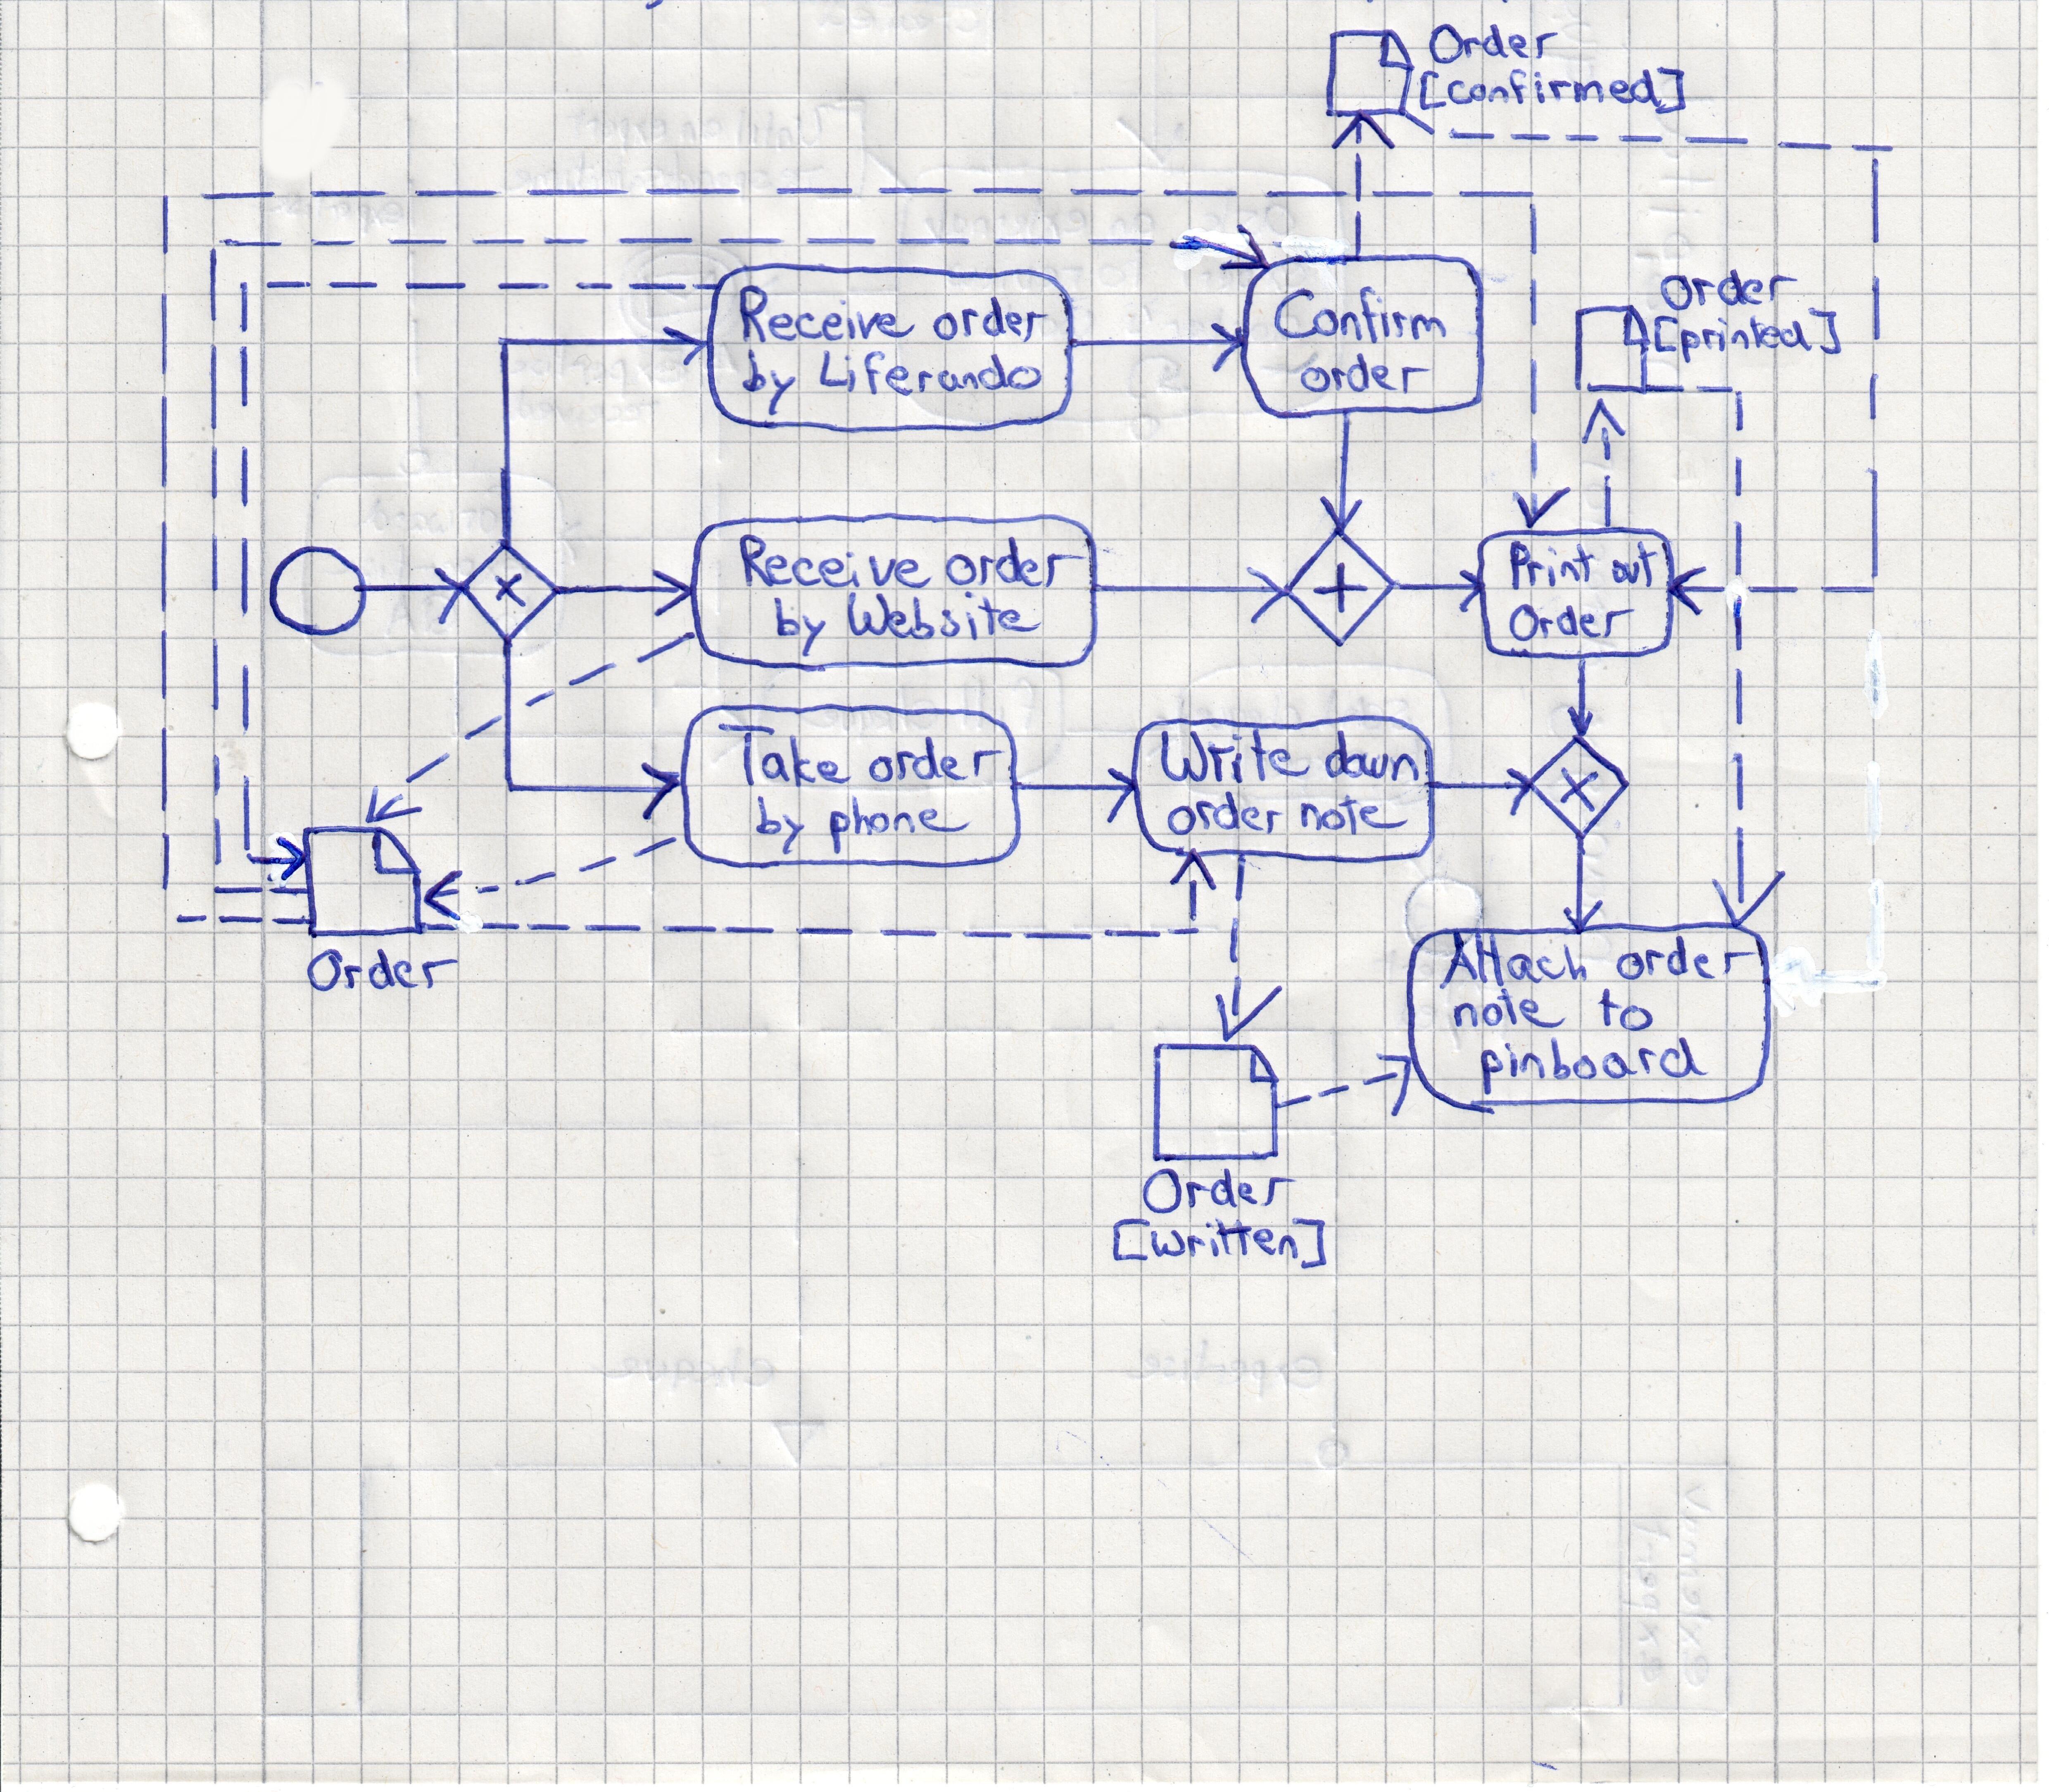 Order
[confirmed]
Order
[printed]
Receive order
by Liferando
Confirm
order
Receive order
by Website
Print out
Order
Take order
by phone
Write down
order note
Order
Attach order
note to
pinboard
Order
[written]